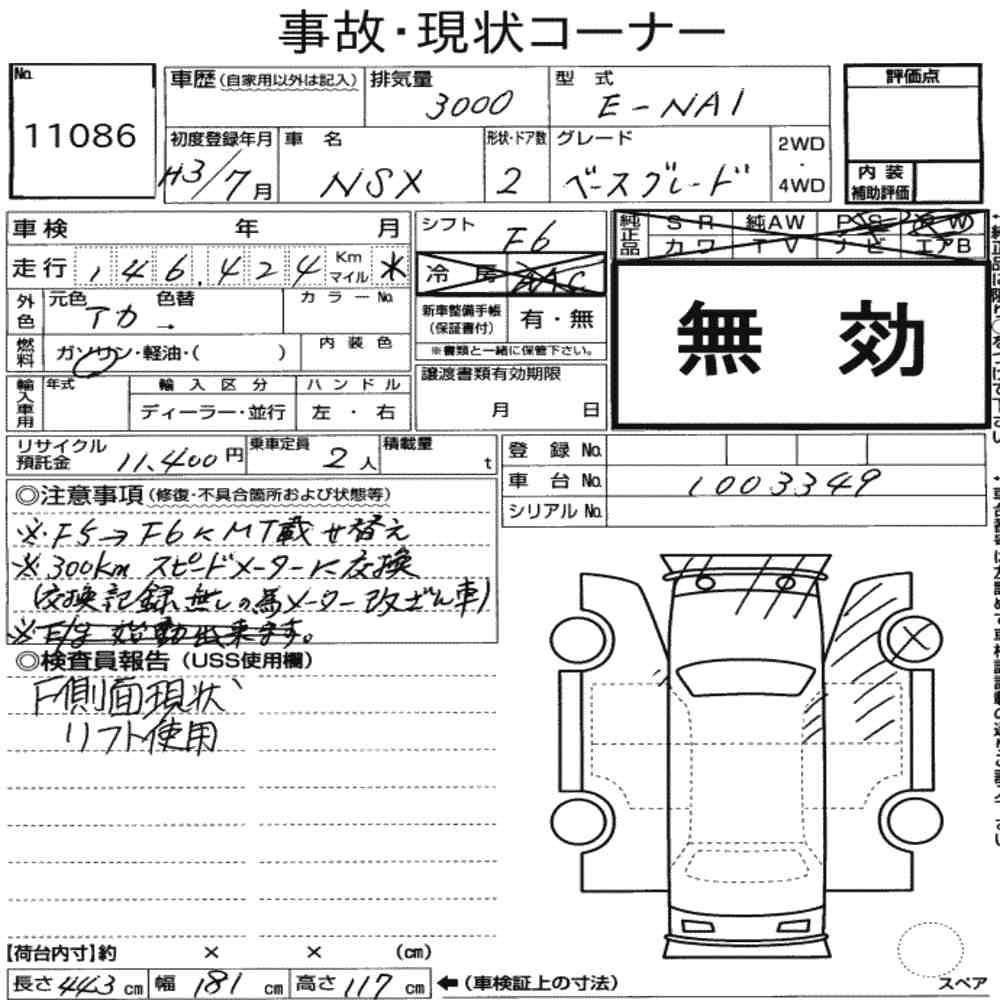 事故・現状コーナー
No. 11086
車歴(自家用以外は記入)
排気量 3000
型式 E-NA1
評価点
初度登録年月 H3/7月
車名 NSX
形状・ドア数 2
グレード ベースグレード
2WD・4WD
内装補助評価
車検 年 月
シフト F6
純正品 SR 純AW PS PW
カワ TV ナビ エアB
走行 146,424 Km マイル *
冷房 AAC
外色 元色 アカ 色替 →
カラーNo.
新車整備手帳(保証書付) 有・無
※書類と一緒に保管下さい。
無効
燃料 ガソリン・軽油・( )
内装色
輸入車用 年式
輸入区分 ディーラー・並行
ハンドル 左・右
譲渡書類有効期限
月 日
リサイクル預託金 11,400円
乗車定員 2人
積載量 t
登録No.
車台No. 1003349
シリアルNo.
◎注意事項(修復・不具合箇所および状態等)
※F5→F6へMT載せ替え
※300km スピードメーターに交換
(交換記録無しの為メーター改ざん車)
◎検査員報告(USS使用欄)
F側面現状
リフト使用
【荷台内寸】約 × × (cm)
長さ 443 cm 幅 181 cm 高さ 117 cm ←(車検証上の寸法)
スペア